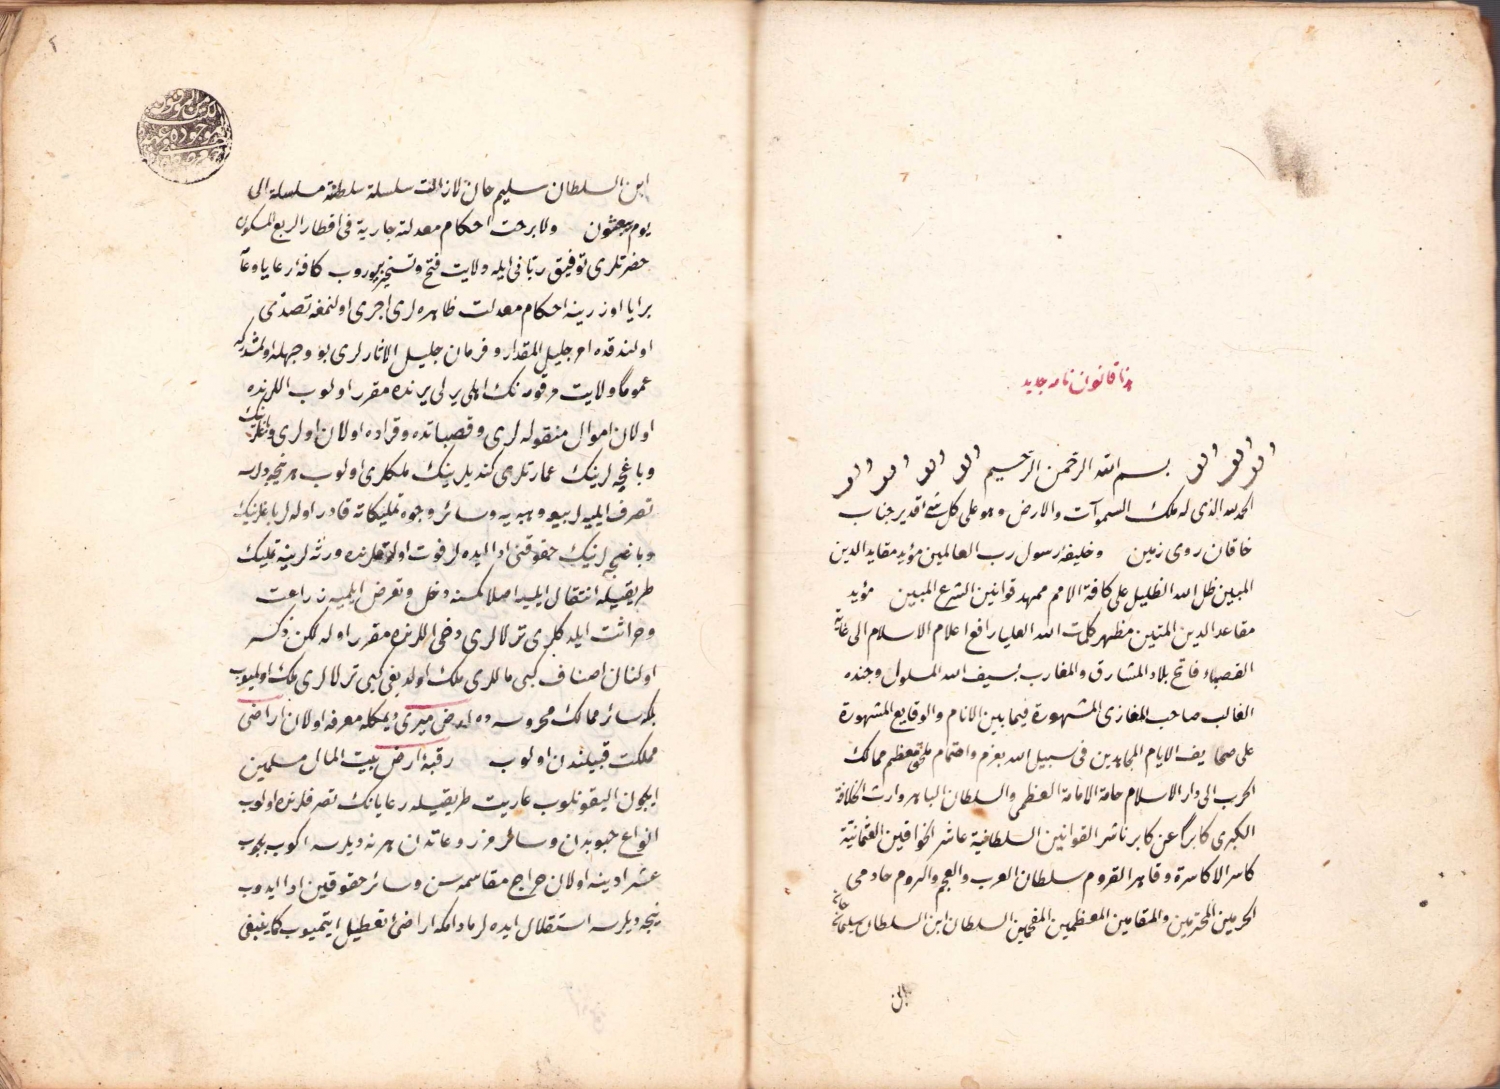 هذا قانون نامه جديد
بسم الله الرحمن الرحيم
الحمد لله الذى له ملك السموات والارض وهو على كل شئ قدير جناب
خاقان روى زمين وخليفه رسول رب العالمين مؤيد مقايد الدين
المبين ظل الله الظليل على كافة الامم ممهد قوانين الشرع المبين مؤيد
مقاعد الدين المتين مظهر كلمات الله العليا رافع اعلام الاسلام الى غاية
القصياء فاتح بلاد المشارق والمغارب بسيف الله المسلول وجنده
الغالب صاحب المغازى المشهورة فيما بين الانام والوقايع المشهورة
على صحايف الايام المجاهدين فى سبيل الله بعزم واهتمام ملحق معظم ممالك
الحرب الى دار الاسلام حامة الامامة العظمى والسلطان الباهر وارث الخلافة
الكبرى كابرا عن كابر ناشر القوانين السلطانية عاشر الخواقين العثمانية
كاسر الاكاسرة وقاهر القروم سلطان العرب والعجم والروم حادمى
الحرمين المحترمين والمقامين المعظمين المفخمين السلطان ابن السلطان سليمان خان
ابن
٢
ابن السلطان سليم خان لازالت سلسلة سلطنته مسلسلة الى
يوم يبعثون ولابرحت احكام معدلته جارية فى اقطار الربع المسكون
حضرتلرى توفيق ربانى ايله ولايت فتح وتسخير بيوروب كافه رعايا وعامه
برايا اوزرينه احكام معدلت ظاهره لرى اجرى اولنمغه تصدى
اولندقده امر جليل المقدار وفرمان جليل الاثارلرى بو وجهله اولمشدركه
عموما ولايت مرقومه نك اهلى يرلى يرنده مقرر اولوب اللرنده
اولان اموال منقوله لرى وقصباتده وقراده اولان اولرى ودكانلرينك
وباغچه لرينك عمارتلرى كنديلرينك ملكلرى اولوب هر نيجه ديلرسه
تصرف ايليه لر بيع وهبه يه وسائر وجوه تمليكاته قادر اوله لر باغلرينك
وباغچه لرينك حقوقنى ادا ايده لر فوت اولدقلرنده ورثه لرينه تمليك
طريقيله انتقال ايليه اصلا كمسنه دخل وتعرض ايلميه زراعت
وحراثت ايله كلرى ترلالرى دخى اللرنده مقرر اوله لكن ذكر
اولنان اصناف كبى ماللرى ملك اولديغى كبى ترلالرى ملك اولميوب
بلكه سائر ممالك محروسه ده ارض ميرى ديمكله معرفه اولان اراضى
مملكت قبيلندن اولوب رقبه ارض بيت المال مسلمين
ايچون اليقونلوب عاريت طريقيله رعايانك تصرفلرنده اولوب
انواع حبوبدن وسائر مزروعاتدن هر نه ديلرسه اكوب بچوب
عشر ادينه اولان خراج مقاسمه سن وسائر حقوقين ادا ايدوب
نيجه ديلرسه استقلال ايده لر مادامكه اراضى تعطيل ايتميوب كما ينبغى